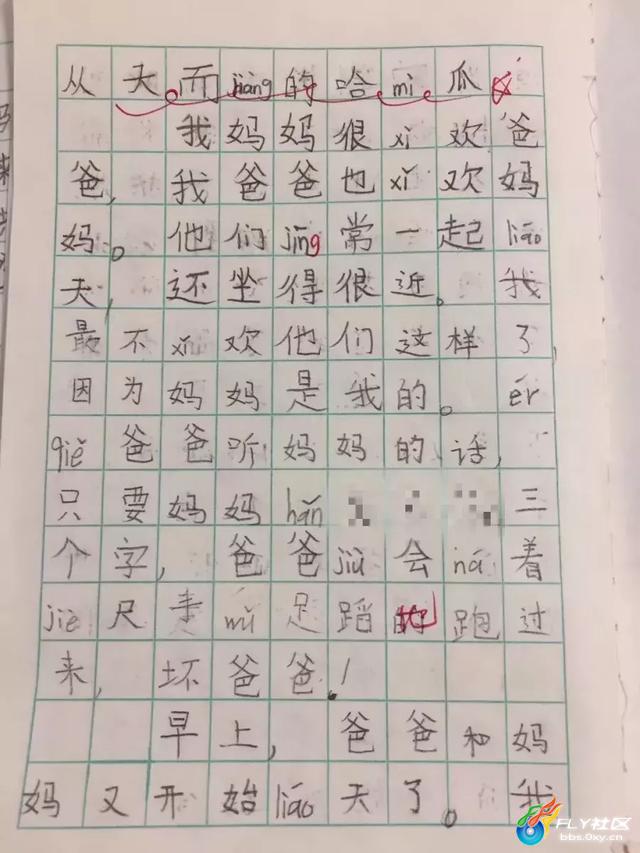 从天而jiàng的哈mì瓜
我妈妈很xǐ欢爸
爸，我爸爸也xǐ欢妈
妈。他们jīng常一起liáo
天，还坐得很近。我
最不xǐ欢他们这样了，
因为妈妈是我的。ér
qiě爸爸听妈妈的话，
只要妈妈hǎn三
个字，爸爸jiù会ná着
jiè尺手wǔ足蹈的跑过
来，坏爸爸！
早上，爸爸和妈
妈又开始liáo天了。我
FLY社区
bbs.0xy.cn